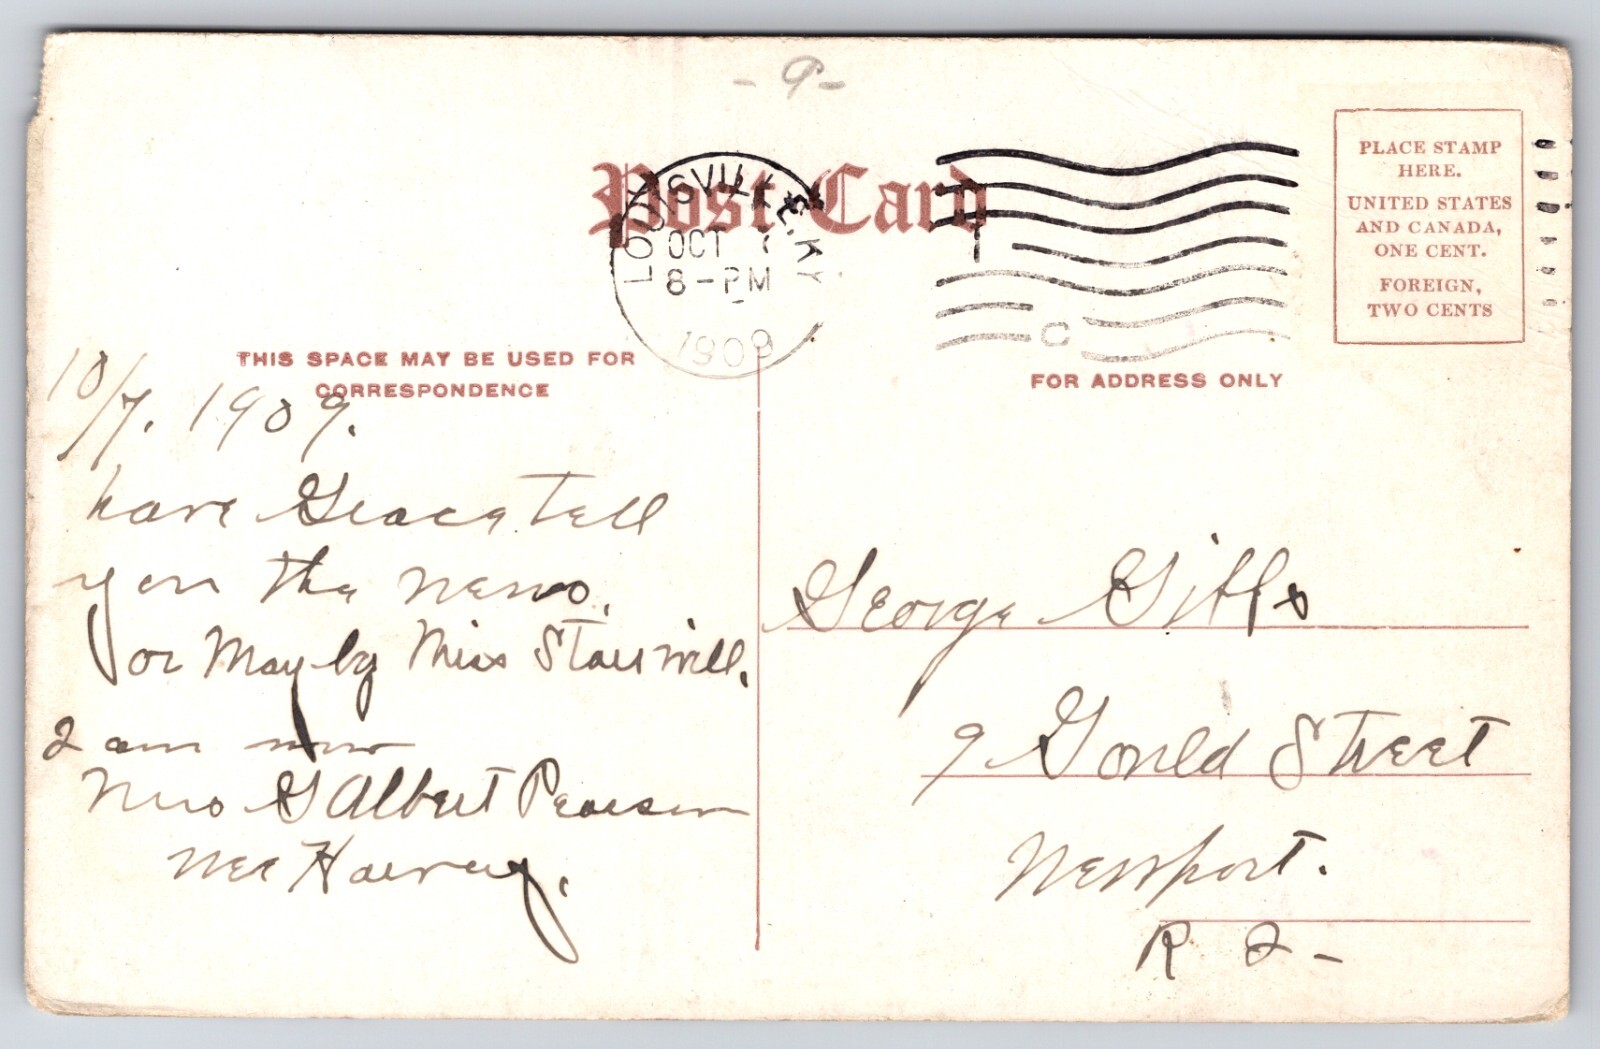 - 9 -
Post Card
LOUISVILLE, KY
OCT
8-PM
1909
PLACE STAMP
HERE.
UNITED STATES
AND CANADA,
ONE CENT.
FOREIGN,
TWO CENTS
THIS SPACE MAY BE USED FOR
CORRESPONDENCE
FOR ADDRESS ONLY
10/7. 1909.
have Grace tell
you the news.
or Mayby Miss
I am now
Mrs G Albert Pearson
nee Harvey.
George
9 Gould Street
Newport.
R I -